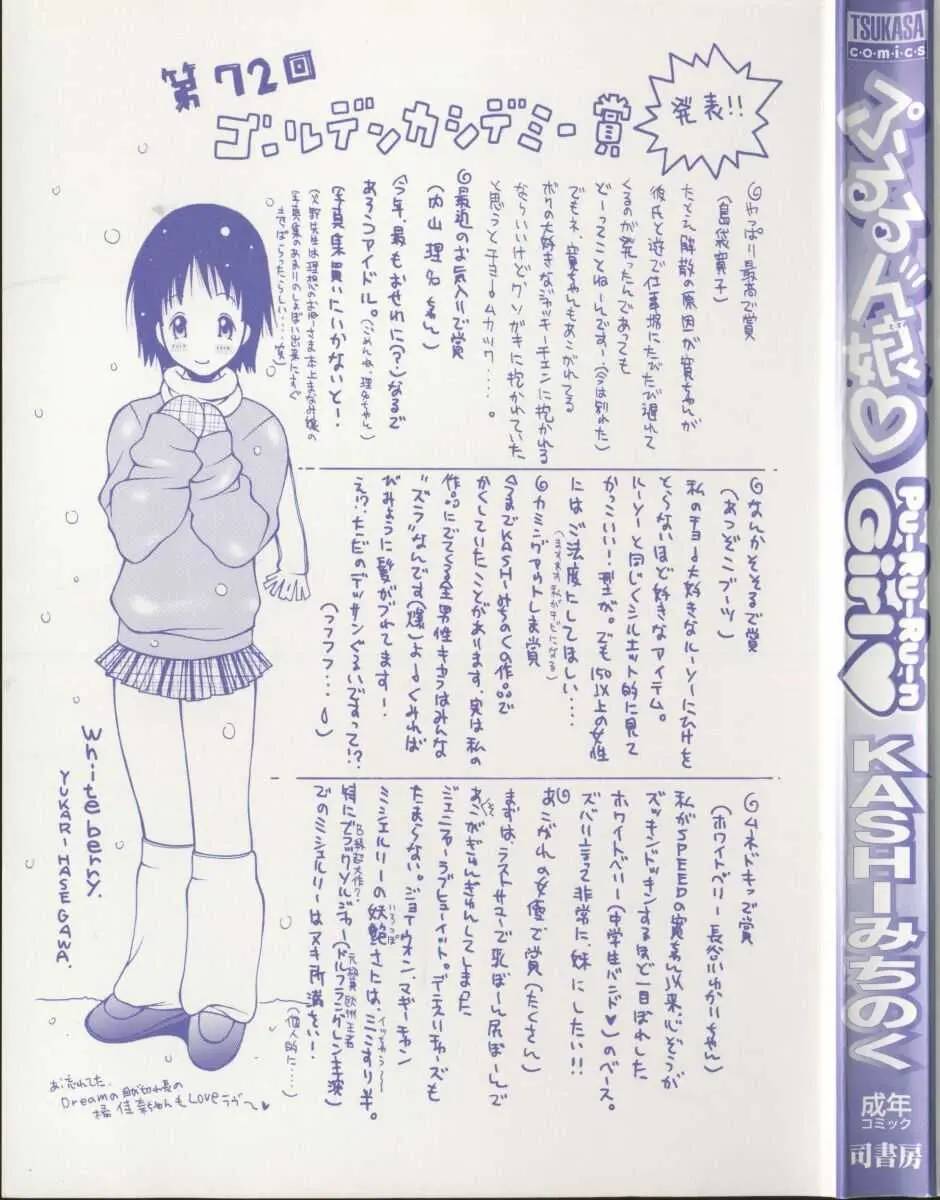 第72回
ゴールデンカシデミー賞
発表!!
やっぱり最高で賞
(島袋寛子)
たとえ解散の原因が寛ちゃんが
彼氏と遊んで仕事場にたびたび遅れて
くるのが発ったんであっても
どーってことねーんです…(今は別れた)
でもネ、寛ちゃんもあこがれてる
ボクの大好きなジャッキーチェンに抱かれる
ならいいけどクソガキに抱かれていた
と思うとチョームカック…。
最近のお気入りで賞
(内山理名さん)
今年、最もおせわに(?)なるで
あろうアイドル。(ごめんね、理名ちゃん)
写真集買いにいかないと!
なんかそそるで賞
(あつぞこブーツ)
私のチョー大好きなルーソーにひけを
とらないほど好きなアイテム。
ルーソーと同じくシルエット的に見て
かっこいい!型だ。でも150以上の女性
にはご法度にしてほしい…
カミングアウトしま賞
今までKASHIみちのくの作品で
かくしていたことがあります。実は私の
作品にでてくる全男性キャラはみんな
“ズラ”なんです(爆)よーくみれば
びみょうに髪がづれてます!
え!?ただのデッサンぐるいですって!?
(フフフフ…)
ムネドキッで賞
(ホワイトベリー 長谷川ゆかりちゃん)
私がSPEEDの寛ちゃん以来、心ぞうが
ズッキンドッキンするほど一目ぼれした
ホワイトベリー(中学生バンド♥)のベース。
ズバリ言って非常に、妹にしたい!!
あこがれの女優で賞(たくさん)
まずは、ラストサマーで乳ぼーん尻ぼーんで
あごがぎゅんぎゅんしてしまった
ジェニファーラブヒューイット。デニスリチャーズも
たまらない。ジョイウォン、マギーチャン
ミシェルリーの妖艶さたは、ミミずり半。
特にブラックソルジャー(ドルフラングレン主演)
でのミシェルリーはヌキ所満さい!
(個人的に…)
Whiteberry.
YUKARI・HASEGAWA.
お、忘れてた、
Dreamの目が切れ長の
橘佳奈ちゃんもLoveラヴ〜♥
TSUKASA
comics
ぷるるん娘♡
PU-RU-RU-n
Girl♥
KASHIみちのく
成年
コミック
司書房